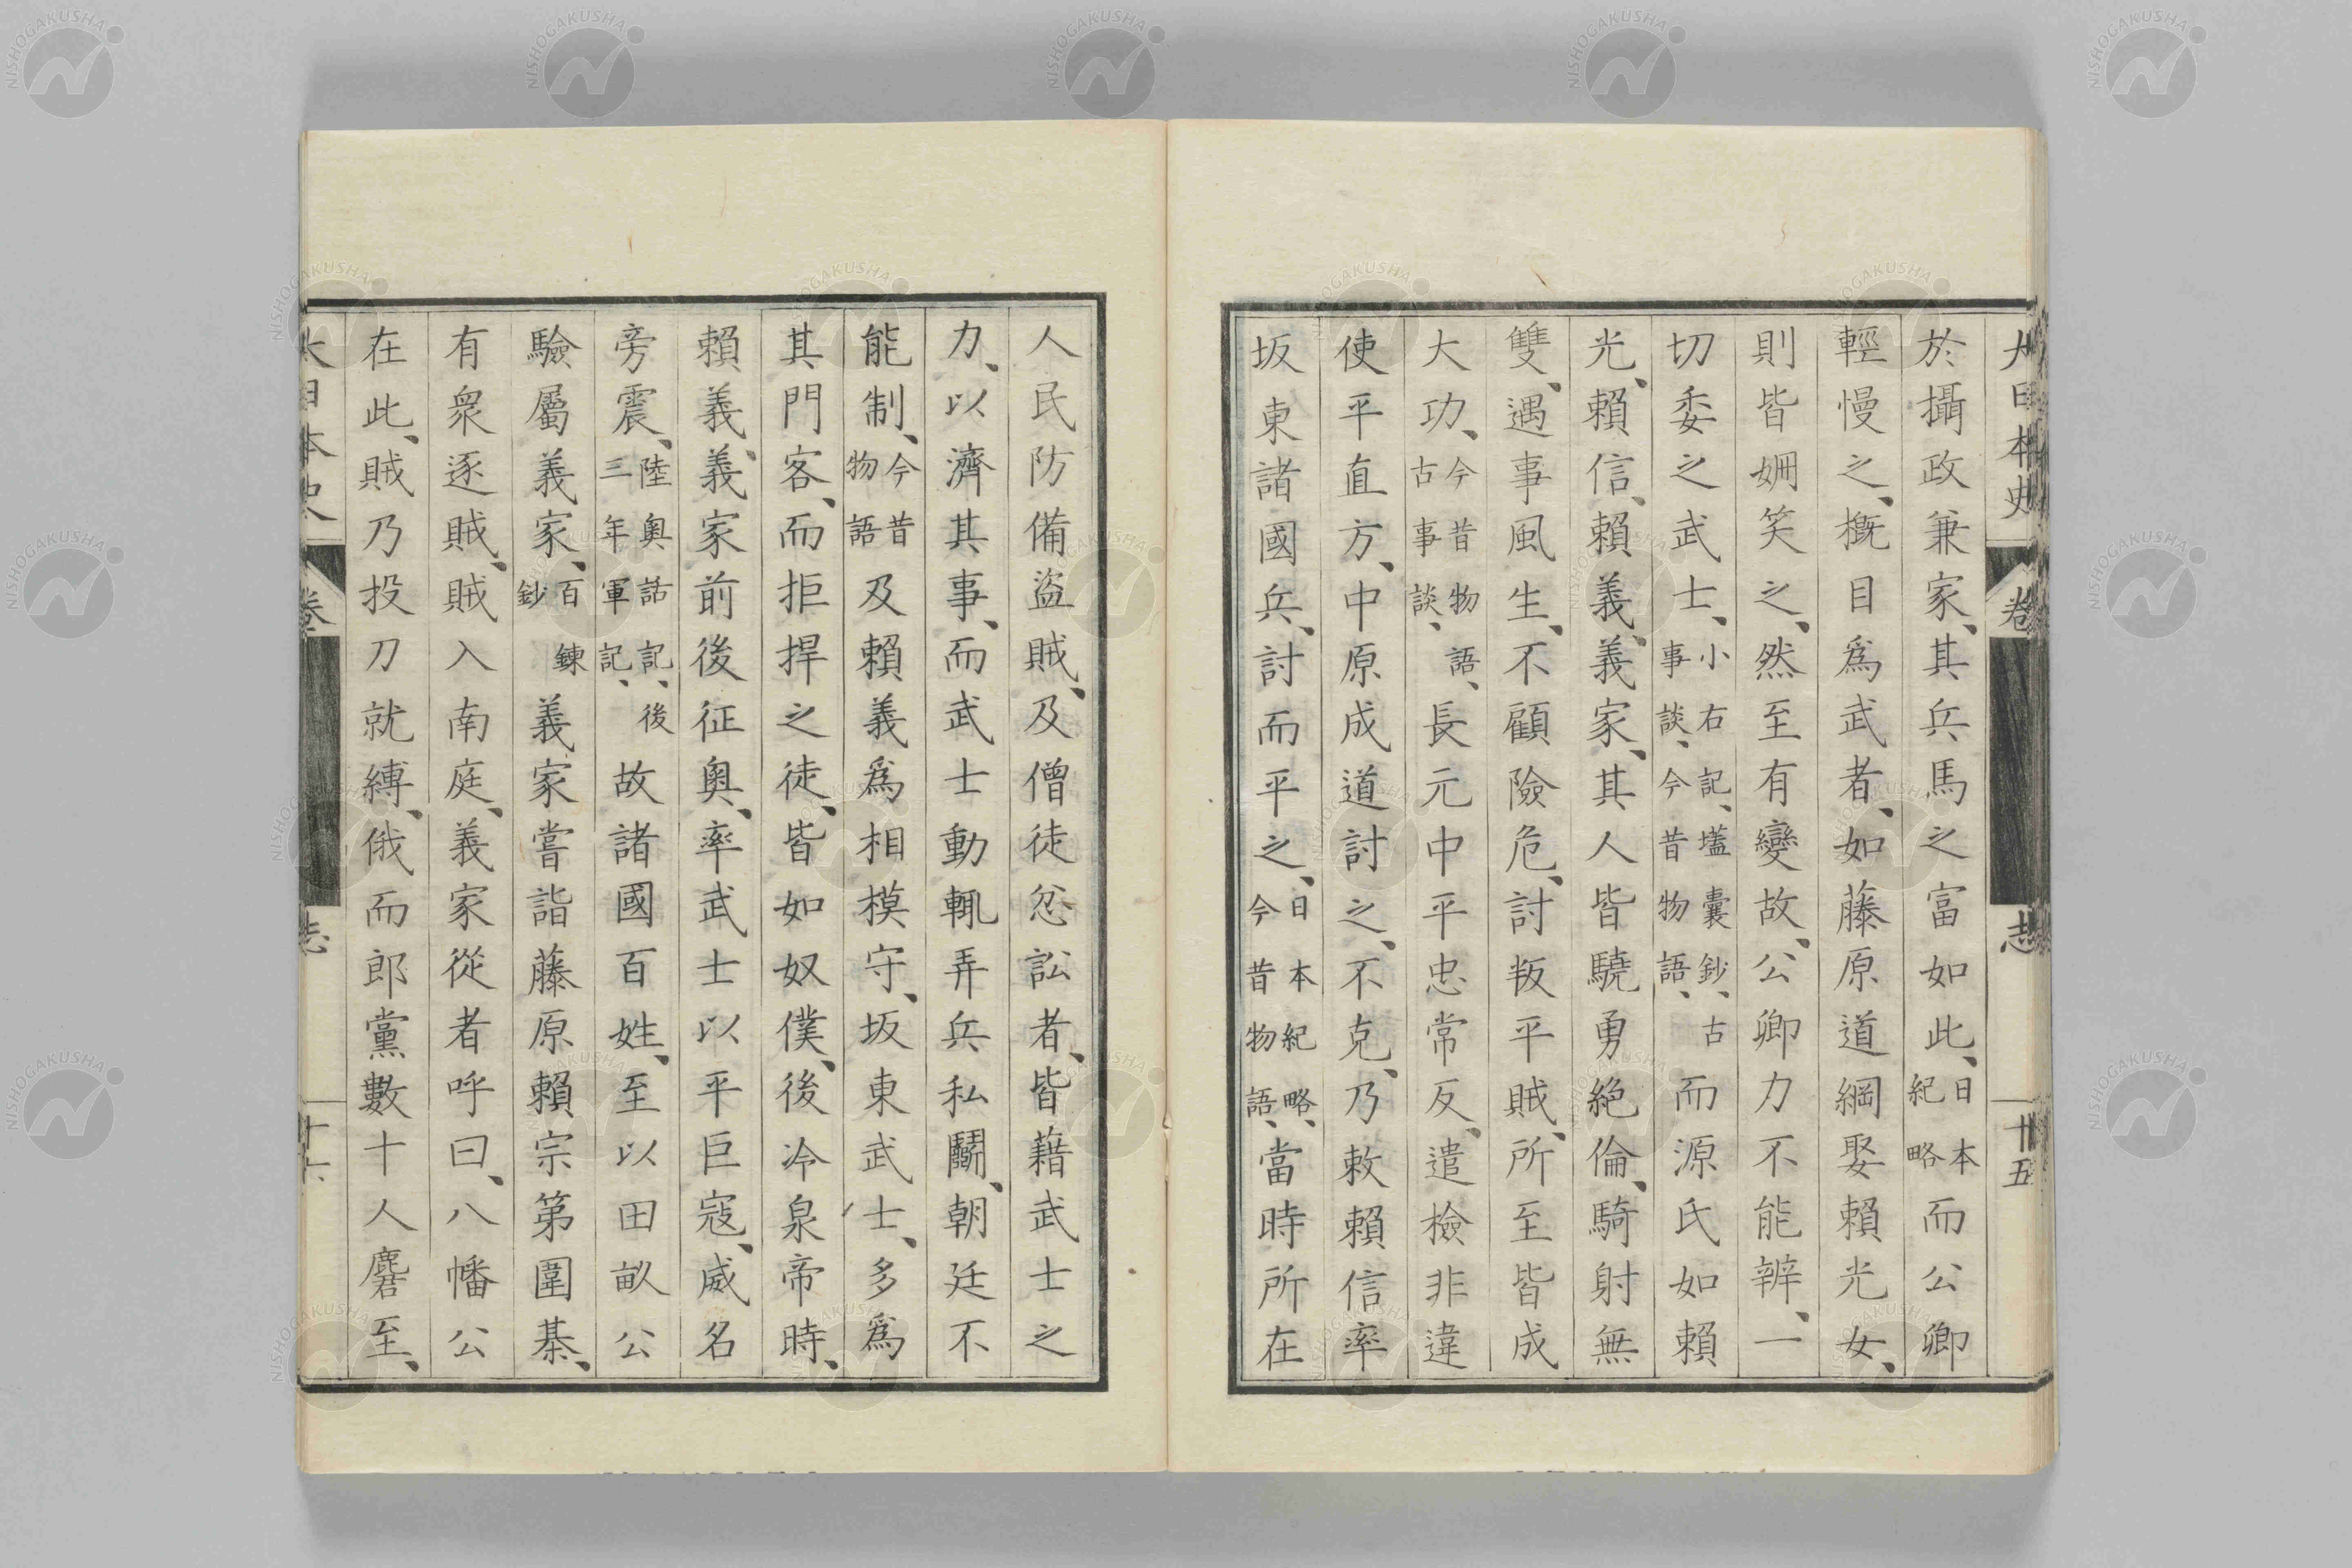 大日本史 卷 志 十五
於攝政兼家、其兵馬之富如此、日本紀略而公卿
輕慢之、概目爲武者、如藤原道綱娶賴光女、
則皆姍笑之、然至有變故、公卿力不能辨、一
切委之武士、小右記、壒囊鈔、古事談、今昔物語、而源氏如賴
光、賴信、賴義、義家、其人皆驍勇絶倫、騎射無
雙、遇事風生、不顧險危、討叛平賊、所至皆成
大功、今昔物語、古事談、長元中平忠常反、遣檢非違
使平直方、中原成道討之、不克、乃敕賴信率
坂東諸國兵、討而平之、日本紀略、今昔物語、當時所在
人民防備盜賊、及僧徒忿訟者、皆藉武士之
力、以濟其事、而武士動輒弄兵私鬭、朝廷不
能制、今昔物語及賴義爲相模守、坂東武士、多爲
其門客、而拒捍之徒、皆如奴僕、後冷泉帝時、
賴義義家前後征奧、率武士以平巨寇、威名
旁震、陸奧話記、後三年軍記、故諸國百姓、至以田畝公
驗屬義家、百鍊鈔義家嘗詣藤原賴宗第圍棊、
有衆逐賊、賊入南庭、義家從者呼曰、八幡公
在此、賊乃投刀就縛、俄而郎黨數十人麕至、
大日本史 卷 志 十六